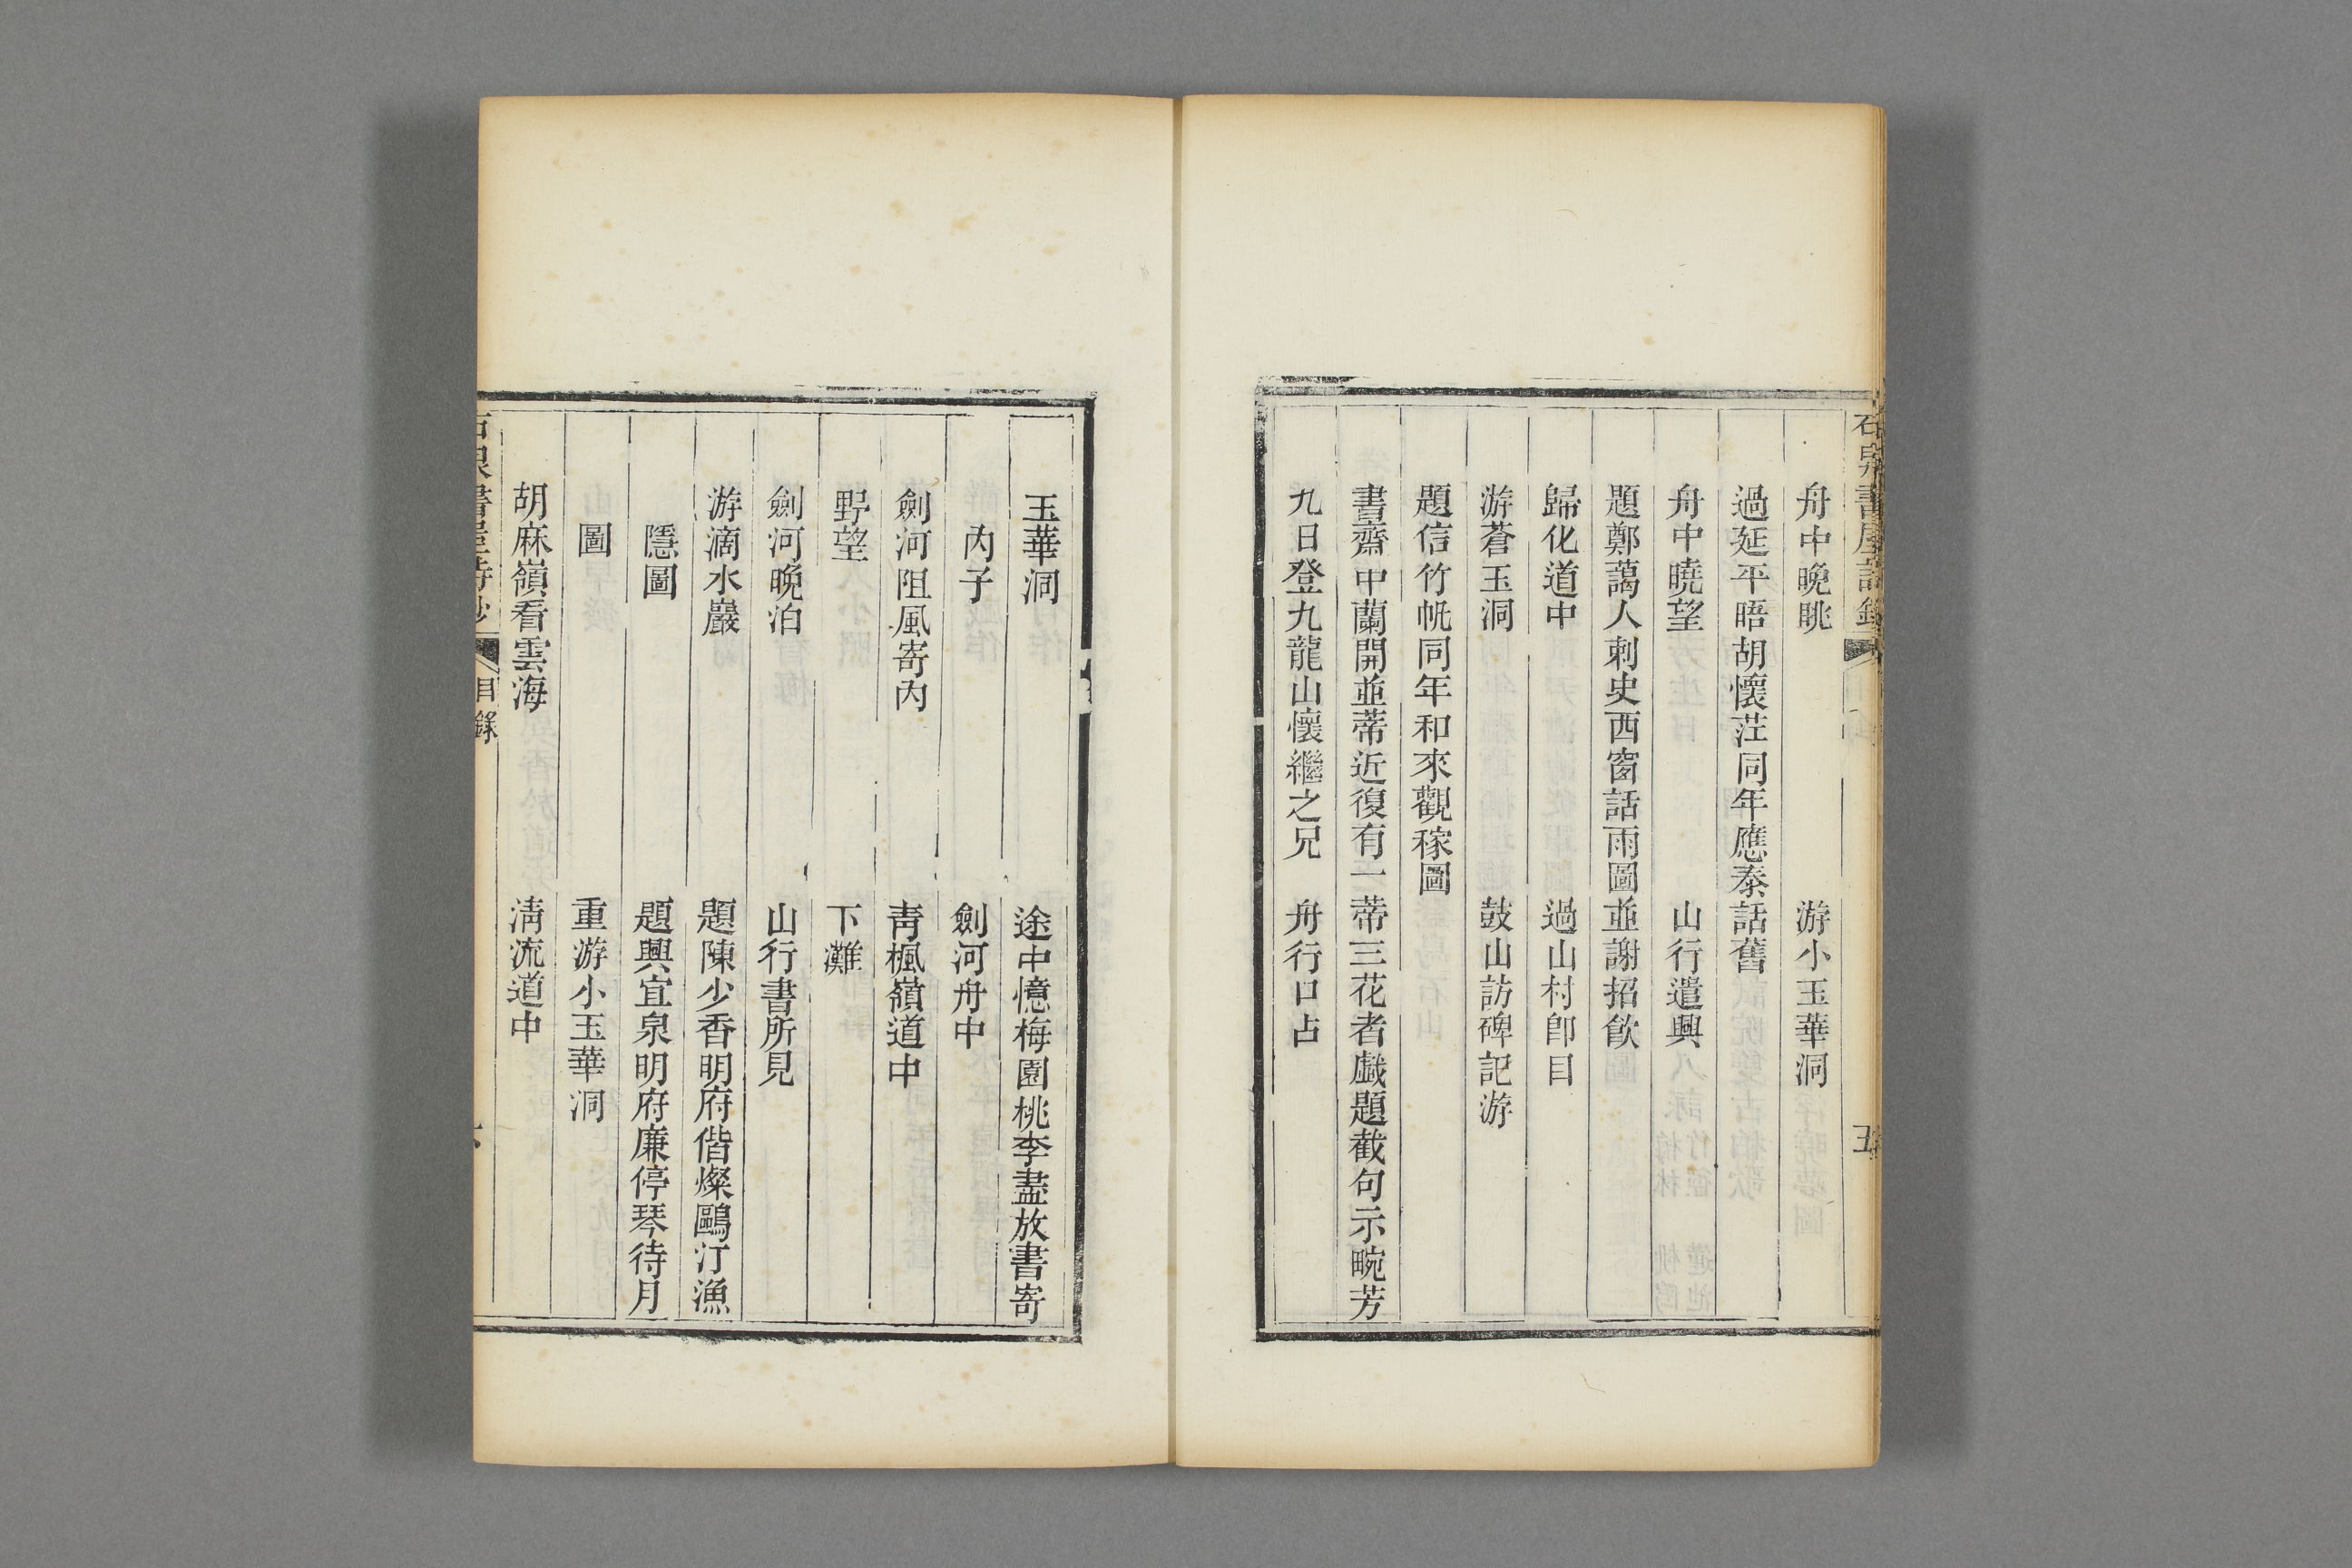 舟中晚眺　游小玉華洞
過延平晤胡懷茳同年應泰話舊
舟中曉望　山行遣興
題鄭蕅人刺史西窗話雨圖並謝招飲
歸化道中　過山村卽目
游蒼玉洞　鼓山訪碑記游
題信竹㡉同年和來觀稼圖
書齋中蘭開並蒂近復有一蒂三花者戲題截句示畹芳
九日登九龍山懷繼之兄　舟行口占
玉華洞　途中憶梅園桃李盡放書寄
內子　劍河舟中
劍河阻風寄內　靑楓嶺道中
野望　下灘
劍河晚泊　山行書所見
游滴水巖　題陳少香明府偕燦鷗汀漁
隱圖　題興宜泉明府廉停琴待月
圖　重游小玉華洞
胡麻嶺看雲海　淸流道中
目錄